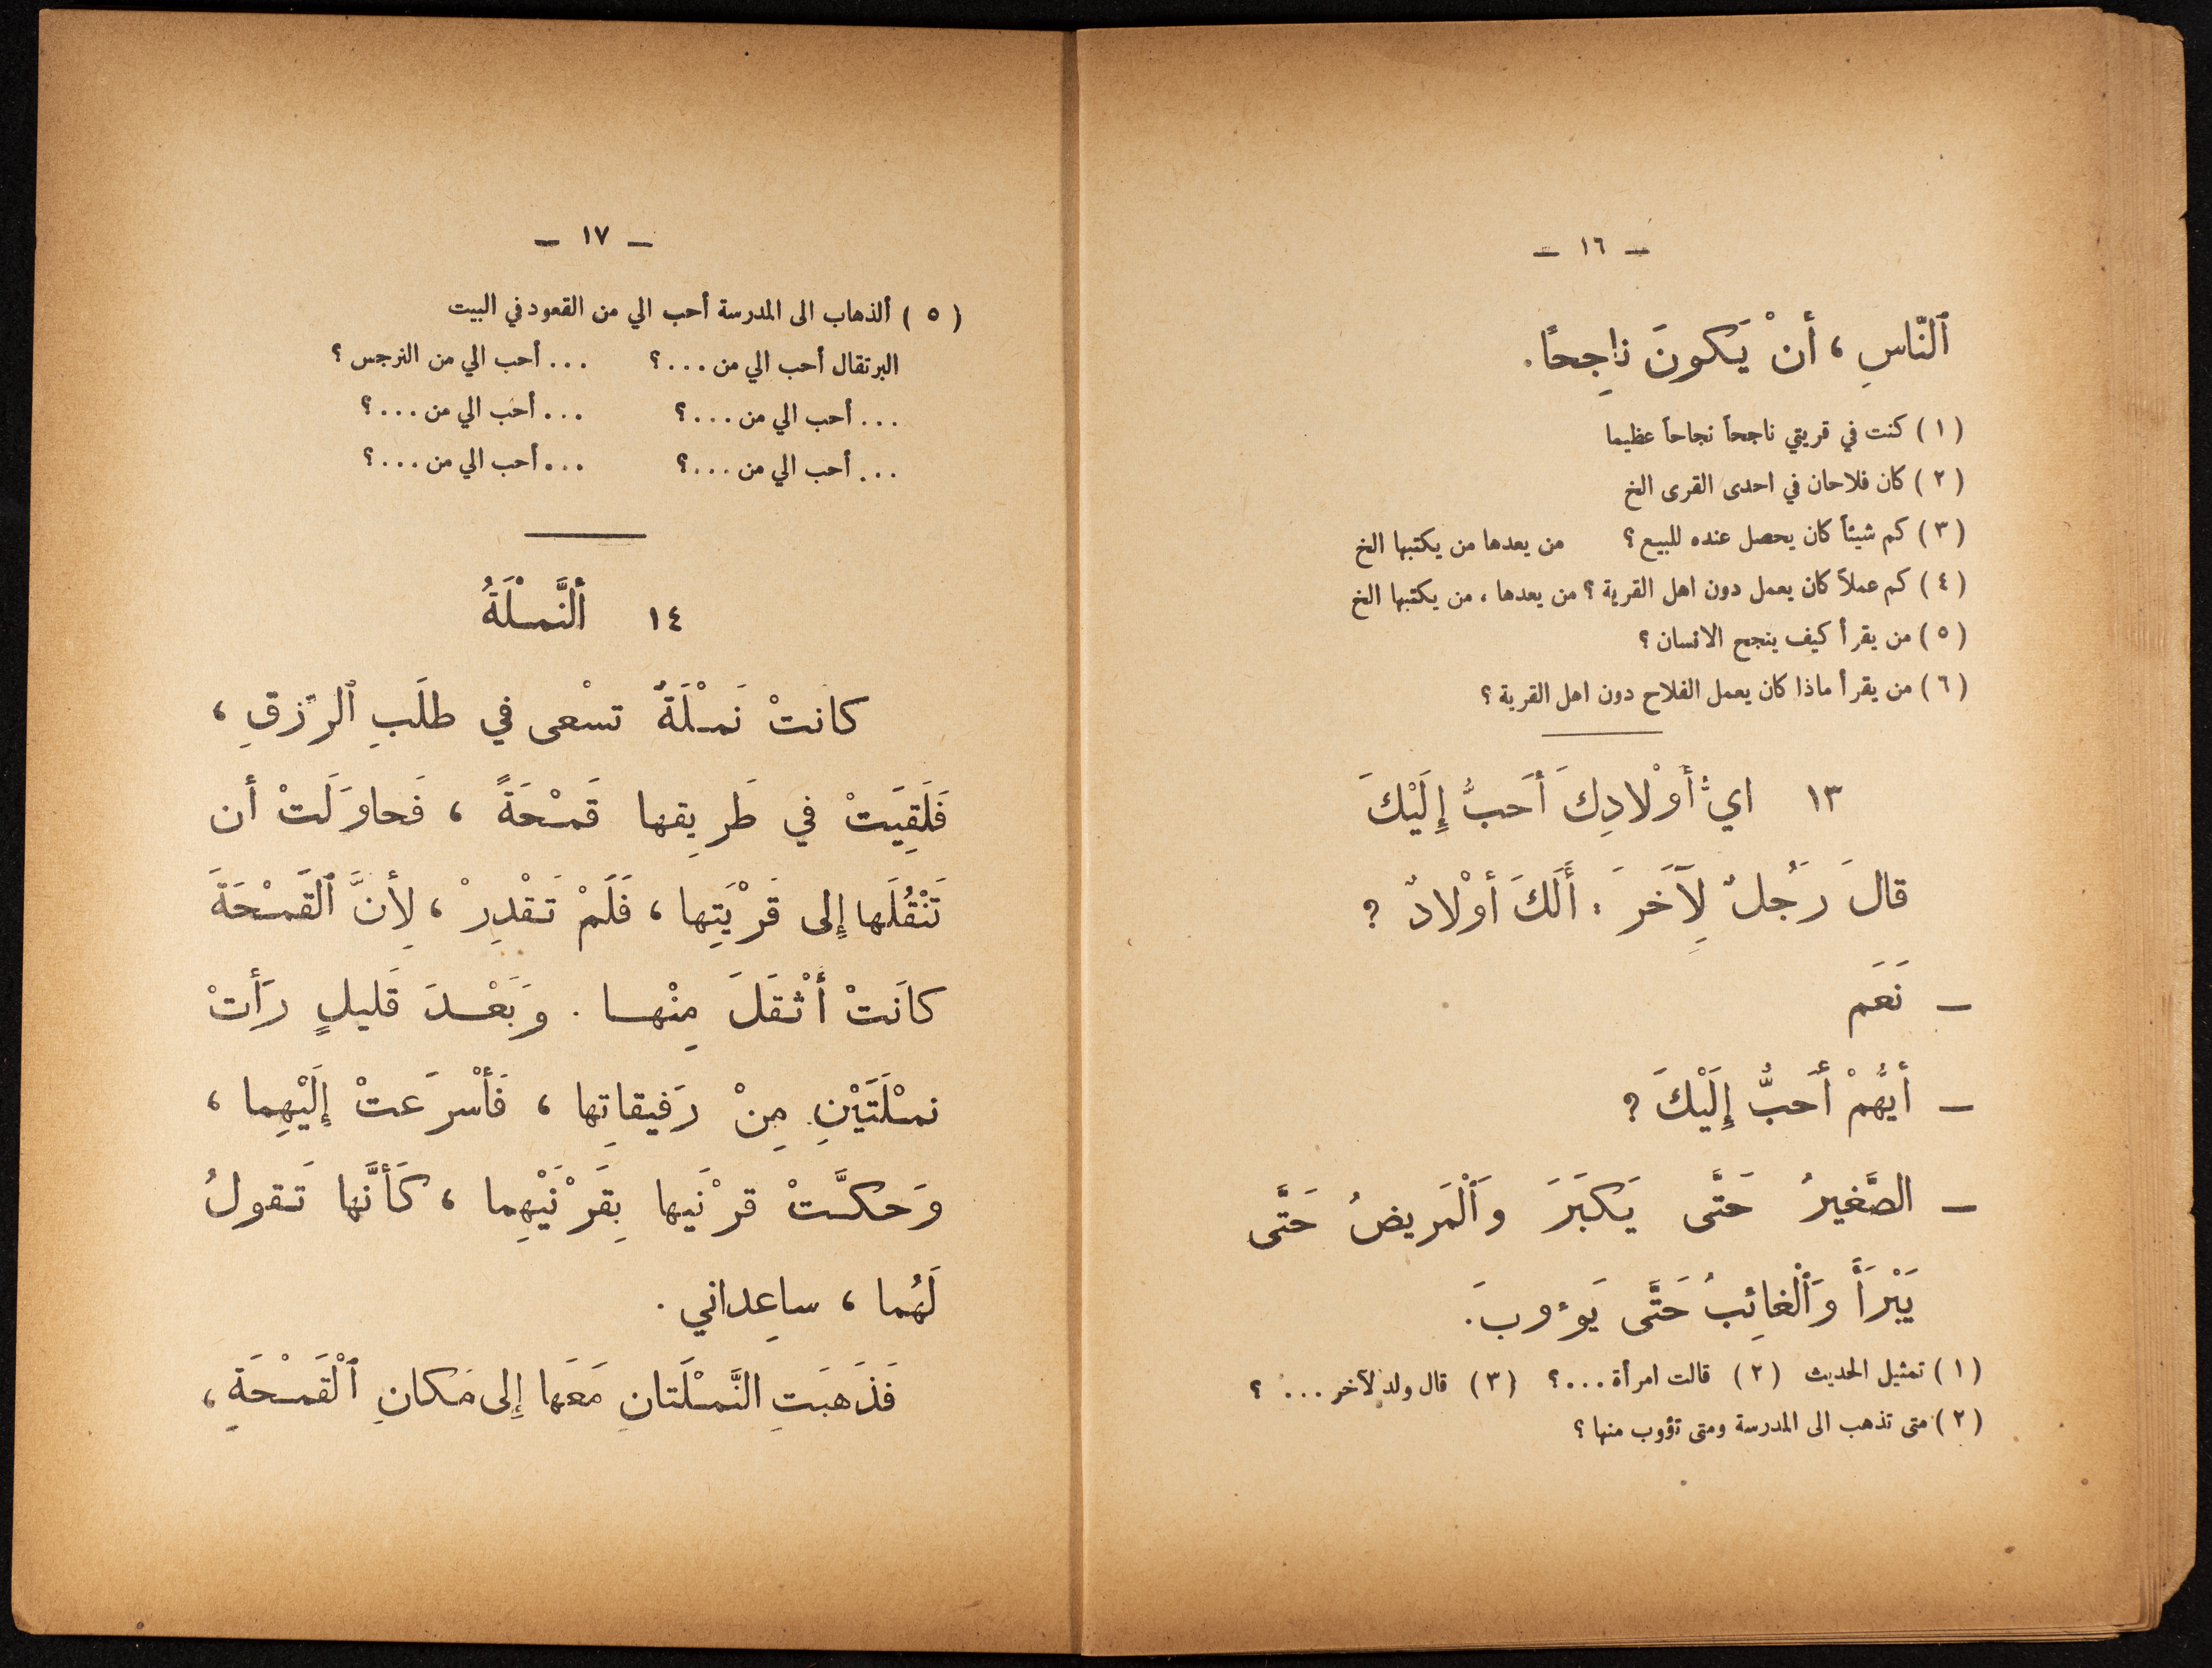 — ١٦ —
ٱلنَّاسِ ، أَنْ يَكونَ ناجِحًا .
( ١ ) كنت في قريتي ناجحاً نجاحاً عظيما
( ٢ ) كان فلاحان في احدى القرى الخ
( ٣ ) كم شيئاً كان يحصل عنده للبيع ؟ من يعدها من يكتبها الخ
( ٤ ) كم عملاً كان يعمل دون اهل القرية ؟ من يعدها ، من يكتبها الخ
( ٥ ) من يقرأ كيف ينجح الانسان ؟
( ٦ ) من يقرأ ماذا كان يعمل الفلاح دون اهل القرية ؟
١٣ ايُّ أَوْلادِكَ أَحَبُّ إِلَيْكَ
قالَ رَجُلٌ لِآخَرَ : أَلَكَ أَوْلادٌ ؟
— نَعَم
— أَيُّهُمْ أَحَبُّ إِلَيْكَ ؟
— الصَّغيرُ حَتَّى يَكبَرَ وَٱلْمَريضُ حَتَّى
يَبْرَأَ وَٱلْغائِبُ حَتَّى يَوءوبَ .
( ١ ) تمثيل الحديث ( ٢ ) قالت امرأة . . . ؟ ( ٣ ) قال ولد لآخر . . . ؟
( ٢ ) متى تذهب الى المدرسة ومتى تؤوب منها ؟
— ١٧ —
( ٥ ) ألذهاب الى المدرسة أحب الي من القعود في البيت
البرتقال أحب الي من . . . ؟ . . . أحب الي من النرجس ؟
. . . أحب الي من . . . ؟ . . . أحب الي من . . . ؟
. . . أحب الي من . . . ؟ . . . أحب الي من . . . ؟
١٤ أَلنَّمْلَةُ
كانتْ نَمْلَةٌ تسْعى في طلَبِ ٱلرِّزقِ ،
فَلَقِيَتْ في طَريقِها قَمْحَةً ، فَحاوَلَتْ أن
تَنْقُلَها إِلى قَرْيَتِها ، فَلَمْ تَقْدِرْ ، لِأَنَّ ٱلقَمْحَةَ
كانَتْ أَثْقَلَ مِنْها . وَبَعْدَ قَليلٍ رَأَتْ
نمْلَتَيْنِ مِنْ رَفيقاتِها ، فَأَسْرَعتْ إِلَيْهِما ،
وَحكَّتْ قرْنَيها بِقَرْنَيْهِما ، كَأَنَّها تَقولُ
لَهُما ، ساعِداني .
فَذَهبَتِ النَّمْلَتانِ مَعَها إِلى مَكانِ ٱلْقَمْحَةِ ،